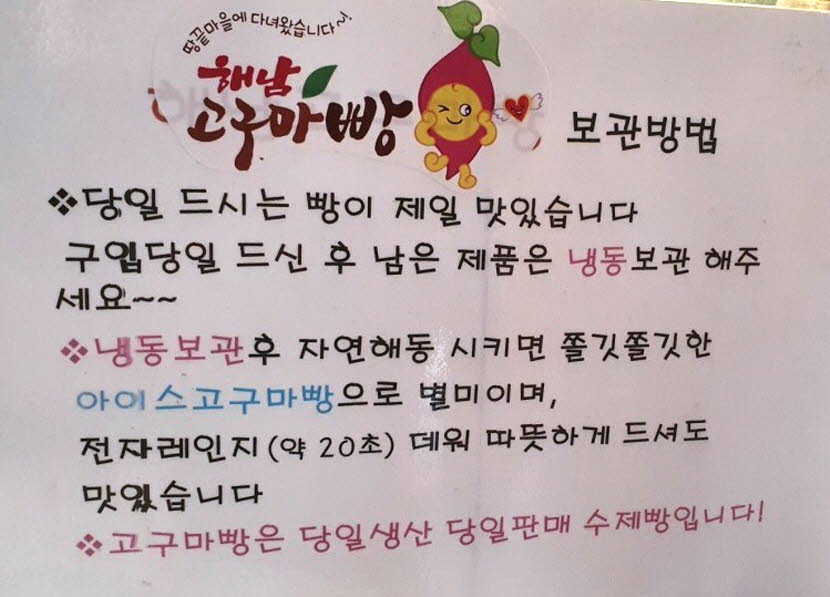 땅끝마을에 다녀왔습니다~!
해남
고구마빵 보관방법
❖당일 드시는 빵이 제일 맛있습니다
구입당일 드신 후 남은 제품은 냉동보관 해주
세요~~
❖냉동보관후 자연해동 시키면 쫄깃쫄깃한
아이스고구마빵으로 별미이며,
전자레인지(약 20초) 데워 따뜻하게 드셔도
맛있습니다
❖고구마빵은 당일생산 당일판매 수제빵입니다!